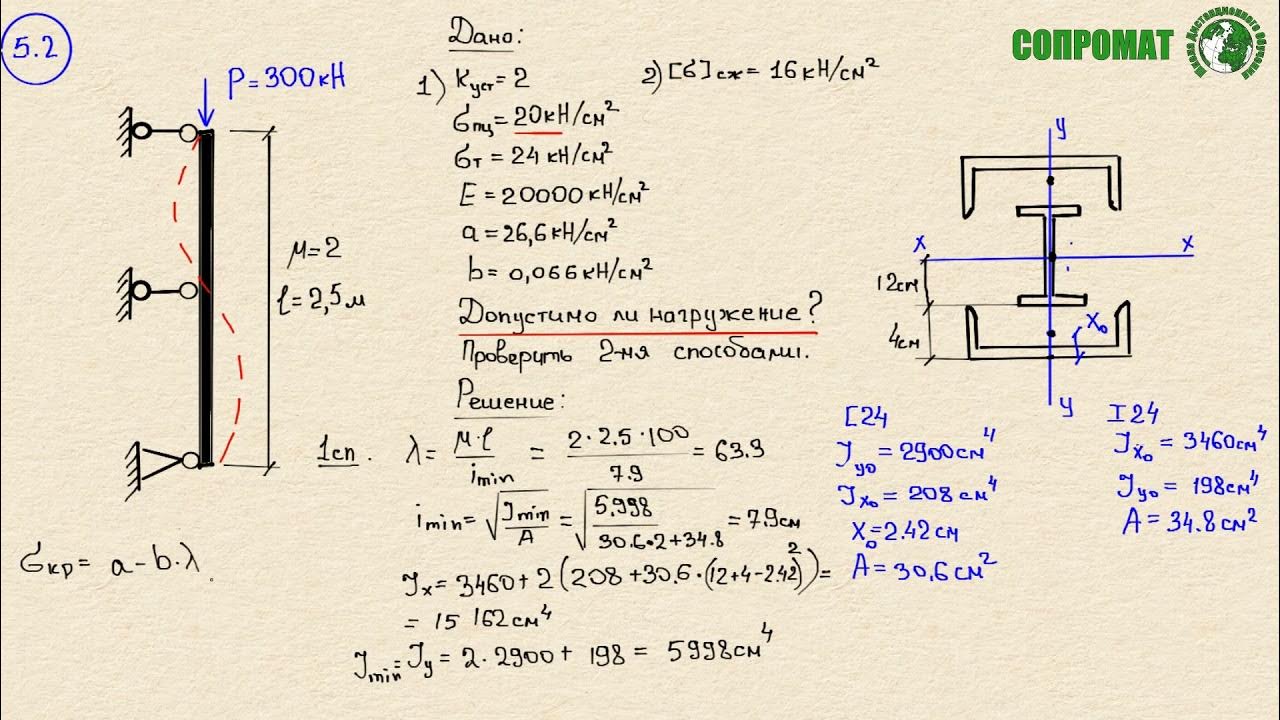 5.2
P=300кН
μ=2
ℓ=2,5м
Gкр= a-b·λ
Дано:
1) Kуст=2
2) [б]сж=16кН/см²
бпц=20кН/см²
бт=24кН/см²
E=20000кН/см²
a=26,6кН/см²
b=0,066кН/см²
Допустимо ли нагружение?
Проверить 2-мя способами.
Решение:
1сп. λ= μ·ℓ/imin = 2·2.5·100/7.9 = 63.3
imin= √(Jmin/A) = √(5.998/30.6·2+34.8) = 7.9см
Jx= 3460+2(208+30.6·(12+4-2.42)²)=
= 15 162см⁴
Jmin=Jy= 2·2900+198= 5998см⁴
СОПРОМАТ
y
x
x
12см
4см
x₀
y
[24
Jy₀=2900см⁴
Jx₀=208см⁴
X₀=2.42см
A=30,6см²
I24
Jx₀=3460см⁴
Jy₀=198см⁴
A=34.8см²